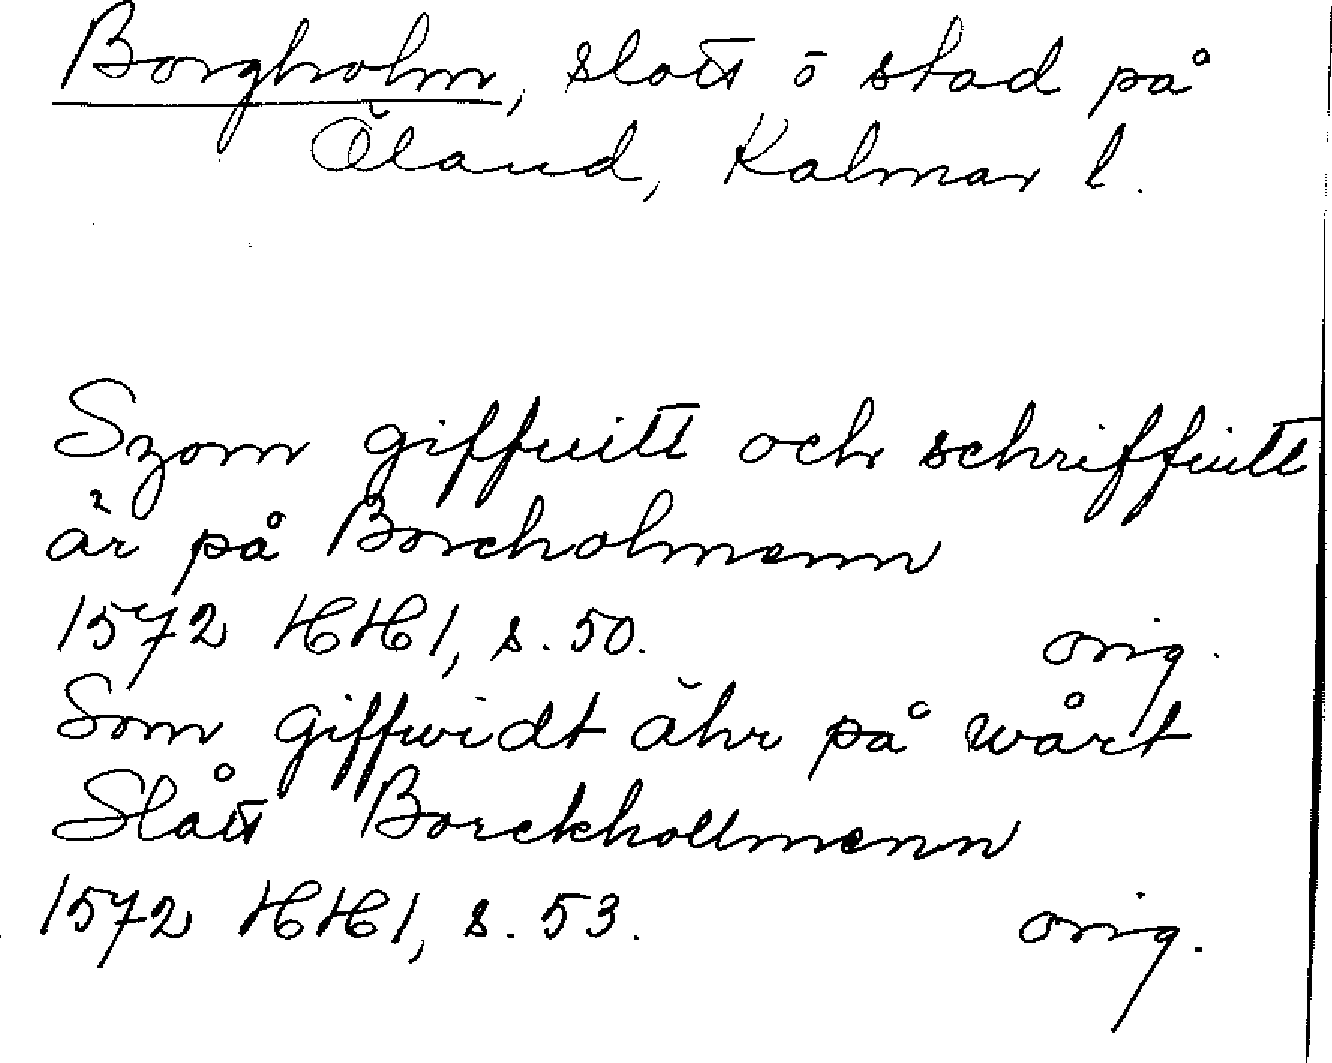 Borgholm, slott ō stad på
Öland, Kalmar l.
Szom giffuitt och schriffuitt
är på Borcholmenn
1572 HH1, s. 50. orig.
Som giffwidt ähr på wårt
Slått Borckhollmenn
1572 HH1, s. 53. orig.